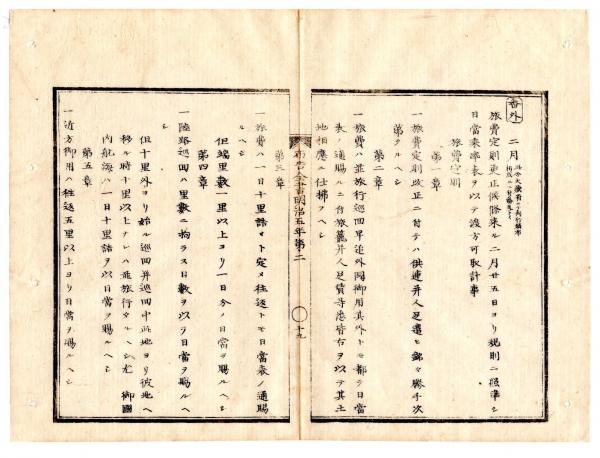 番外
二月
旅費定則更正候條来ル二月廿五日ヨリ規則ニ照準シ
日當来率表ヲ以テ渡方可取計事
旅費定則
第一章
一旅費定則改正ニ付テハ供連并人足遣ヒ銘々勝手次
第タルヘシ
第二章
一旅費ハ並旅行巡回早追外國御用其外トモ都テ日當
表ノ通賜ルニ付旅籠并人足賃等悉皆右ヲ以テ其土
地相應ニ仕拂フヘシ
布告全書明治五年第二
十九
第三章
一旅費ハ一日十里詰メト定メ往返トモ日當表ノ通賜
ルヘシ
但端里数一里以上ヨリ一日分ノ日當ヲ賜ルヘシ
第四章
一陸路巡回ハ里数ニ拘ラス日数ヲ以テ日當ヲ賜ルヘ
シ
但十里外ヨリ始ル巡回并巡回中此地ヨリ彼地ヘ
移ル時十里以上ナレハ並旅行タルヘシ尤御國
内航海ハ一日十里詰ヲ以日當ヲ賜ルヘシ
第五章
一近方御用ハ往返五里以上ヨリ日當ヲ賜ルヘシ